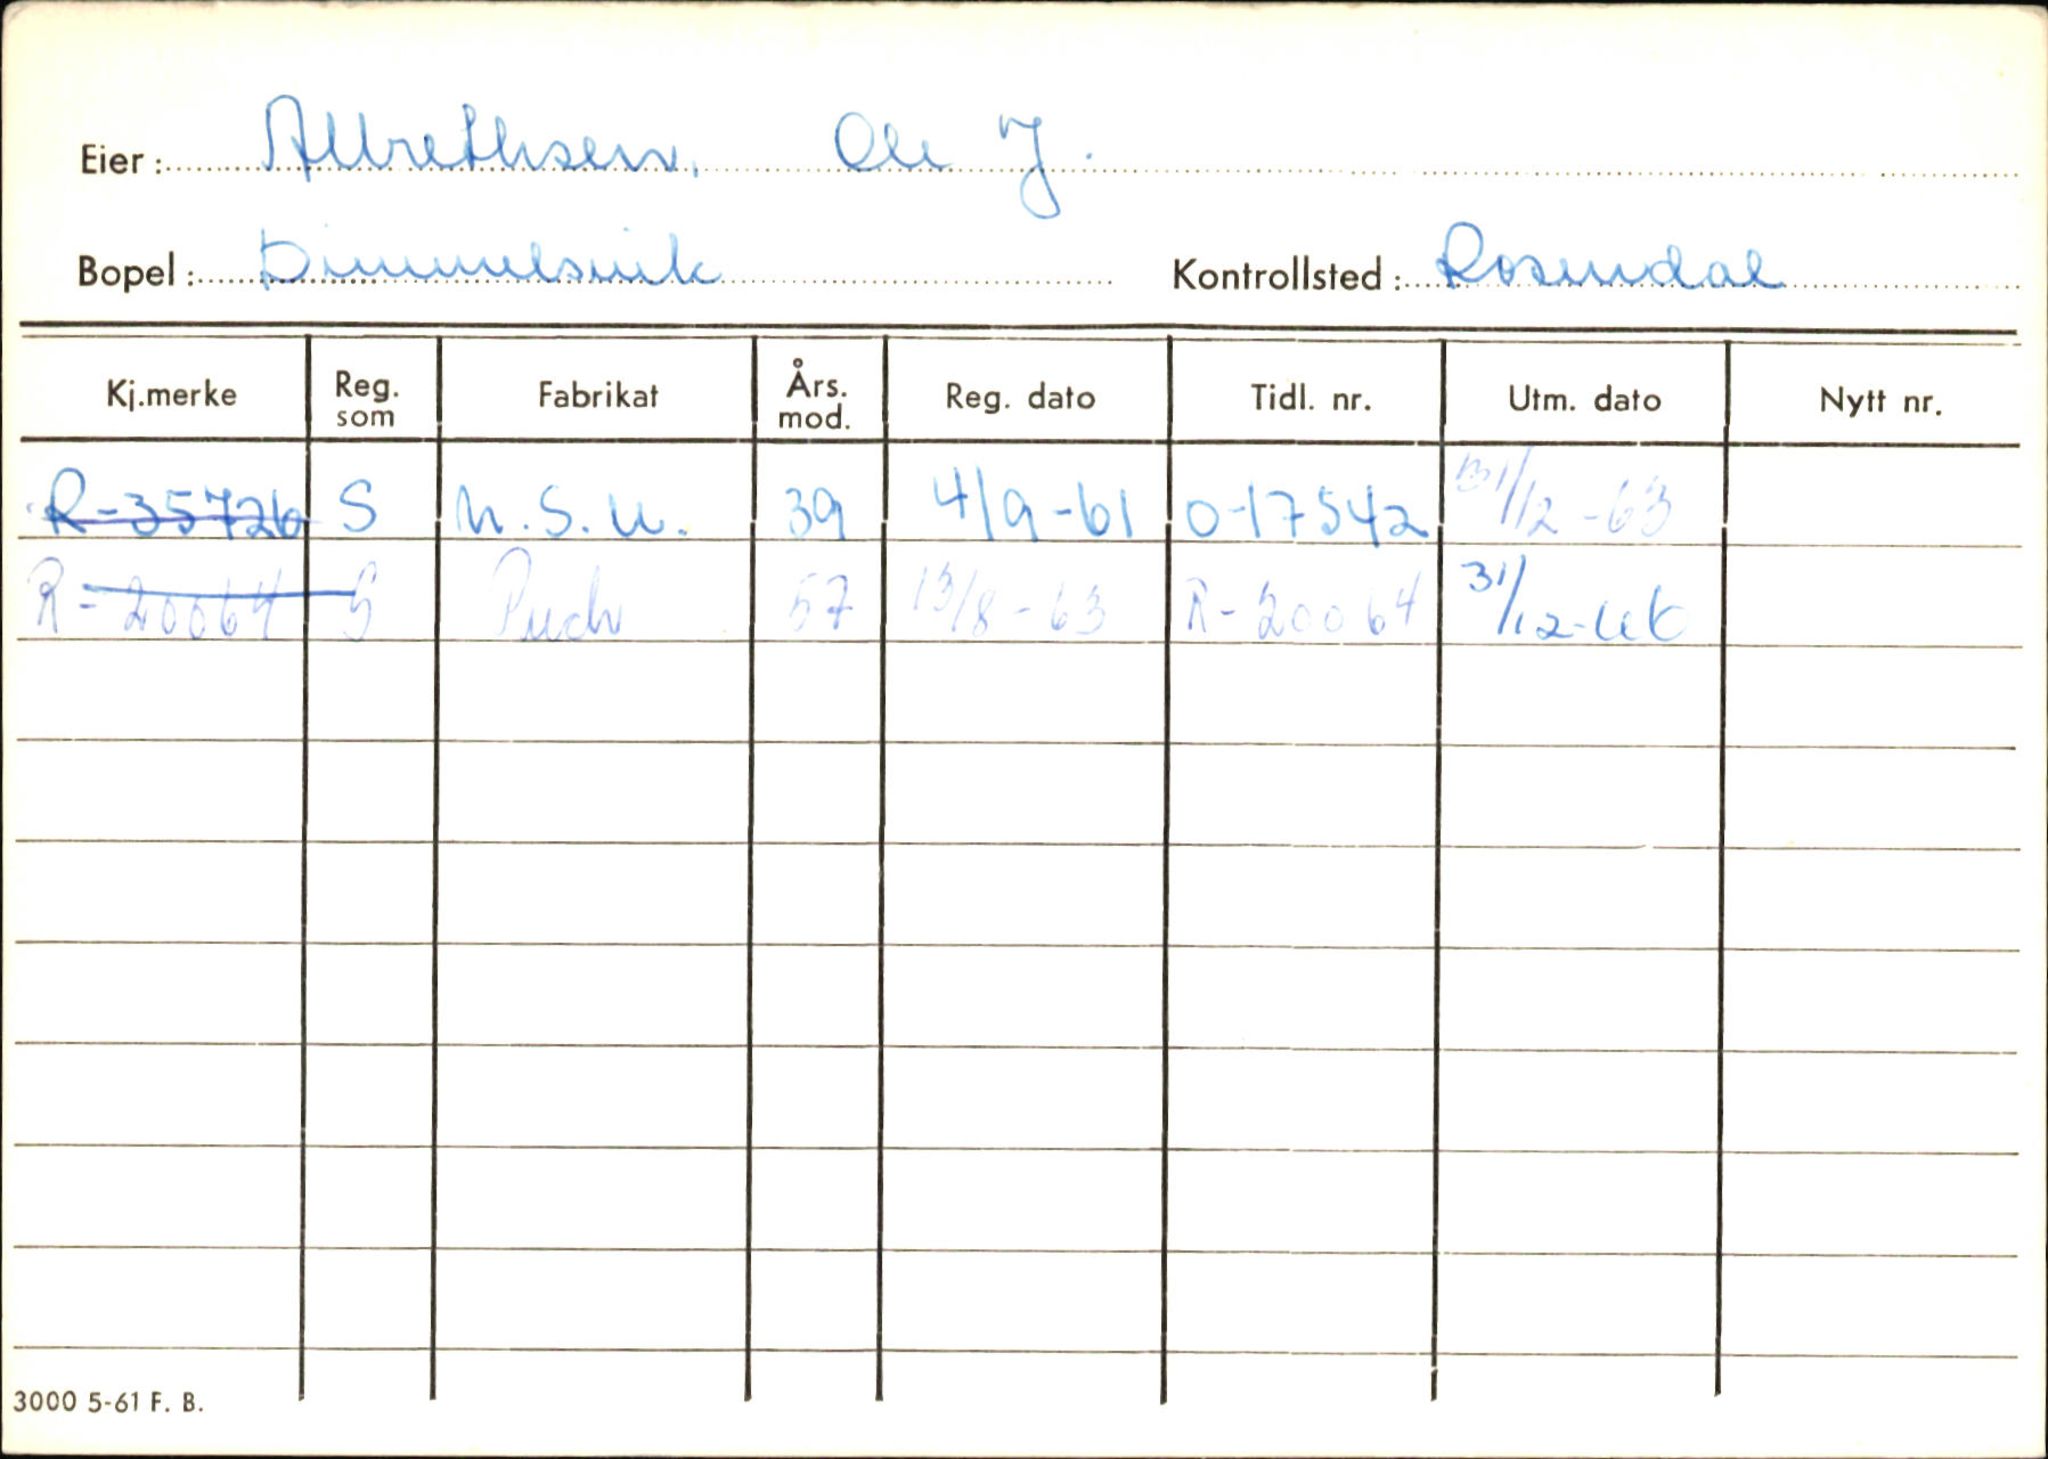 Eier: Albrethsen, Ole J.
Bopel: Dimmelsvik Kontrollsted: Rosendal
Kj.merke Reg. som Fabrikat Års. mod. Reg. dato Tidl. nr. Utm. dato Nytt nr.
R-35726 S N.S.U. 39 4/9-61 O-17542 31/12-63
R-20064 S Puch 57 13/8-63 R-20064 31/12-66
3000 5-61 F. B.